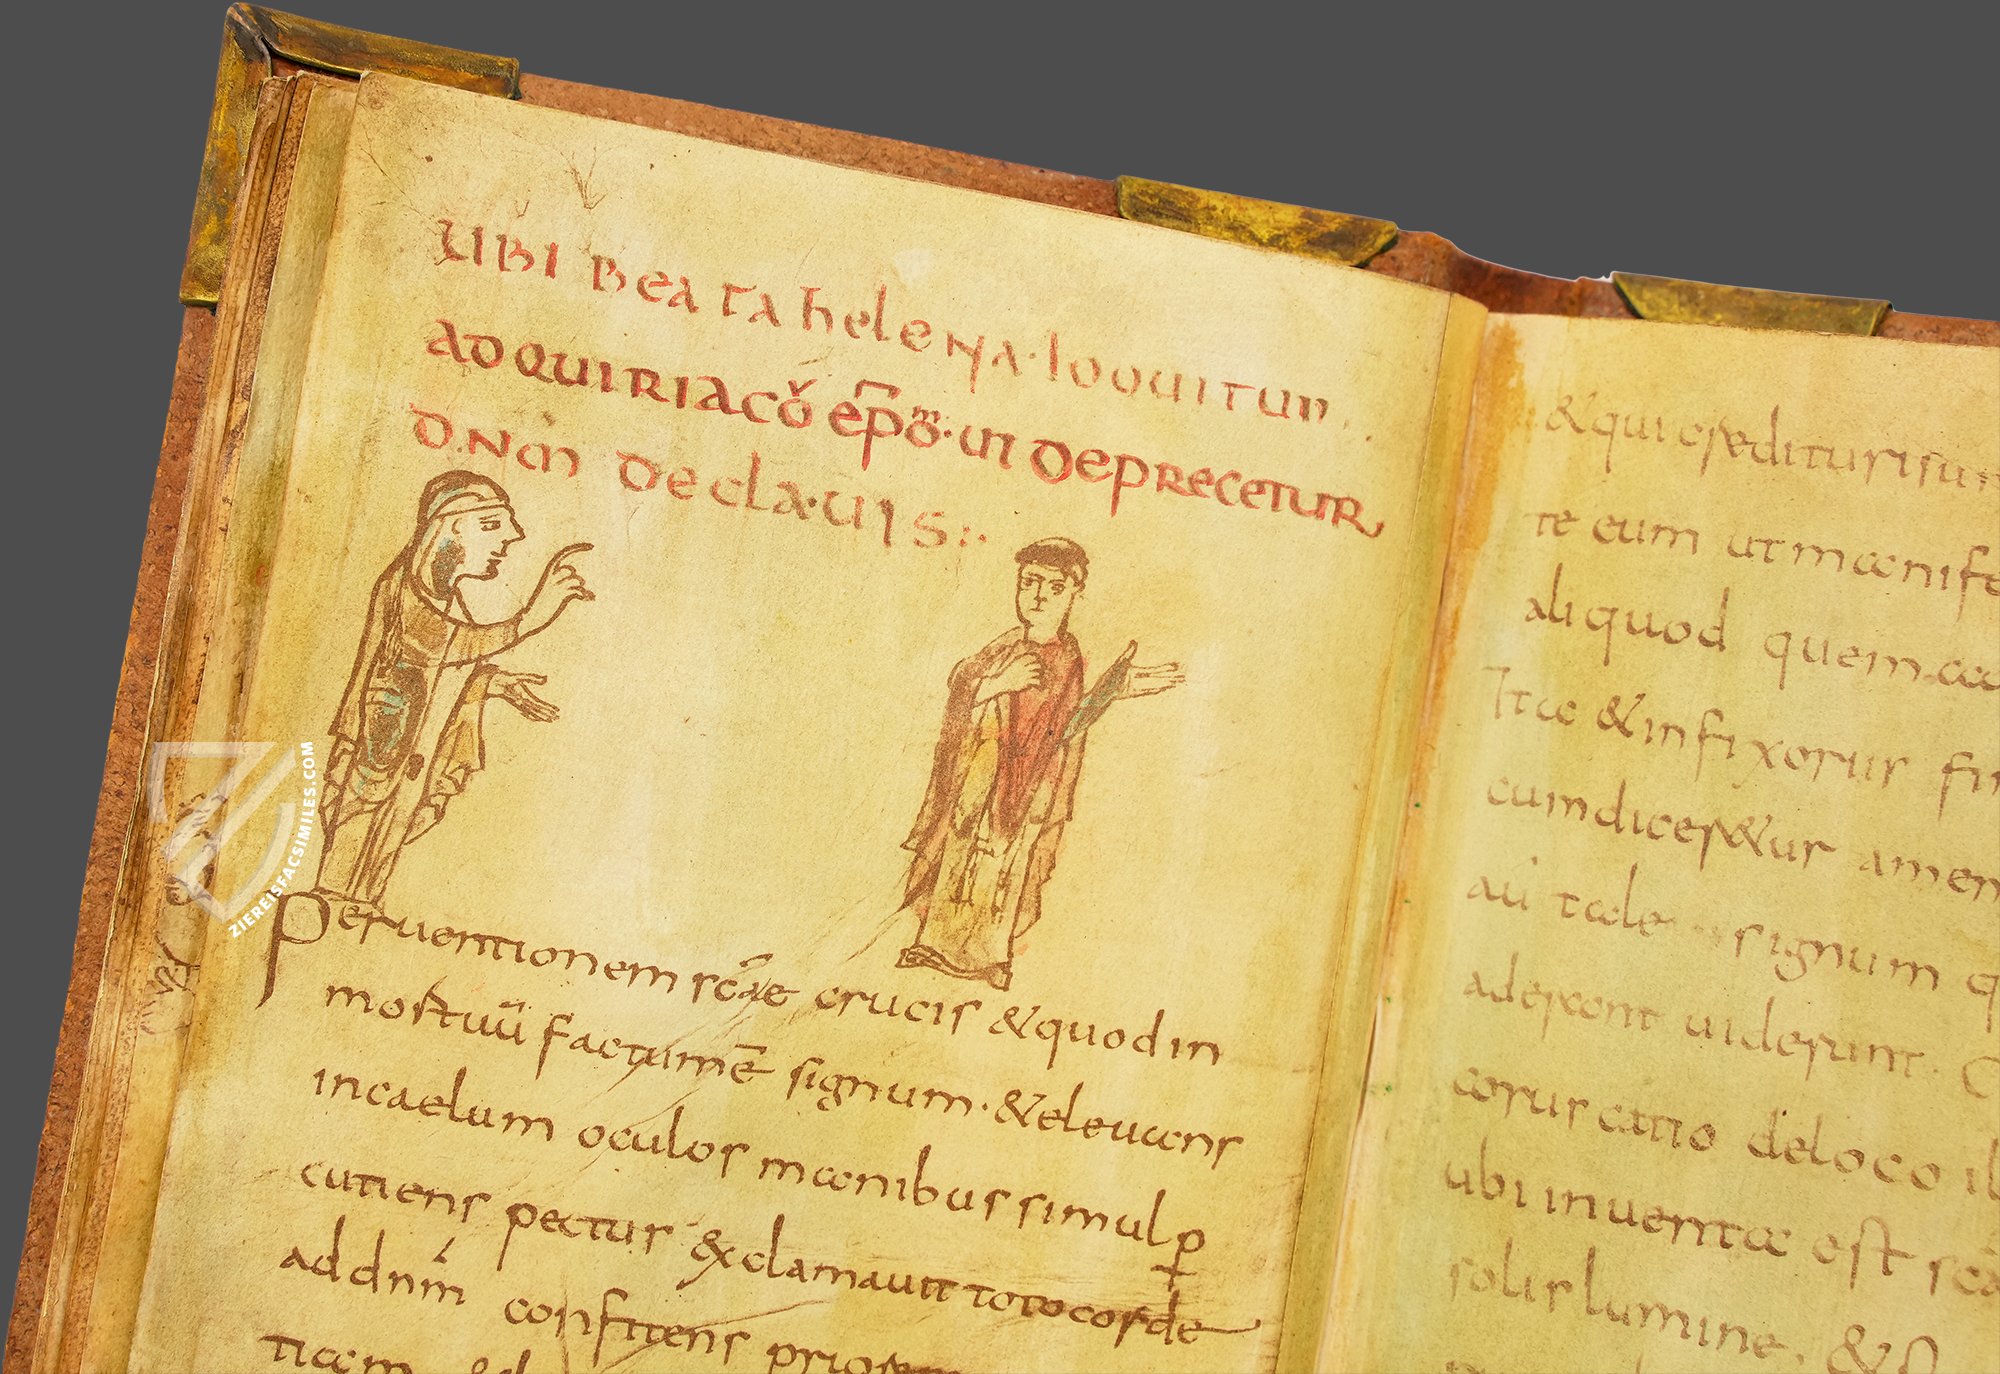 UBI BEATA hELENA·LOQUITUR
AD QUIRIACŌ EPM̄·UT DEPRECETUR
DNM DE CLAUIS:·
Peruentionem scāe crucis & quod in
mostuū factum ē signum·& eleuans
in caelum oculos manibus simul p
cutiens pectus & clamauit toto corde
ad dnm confitens prio
ticam
& qui crediturisun
te eum ut manife
aliquod quem
Ita & infixorus
cum dicess&ur amen
aū tale signum q
aderant uiderunt·
coruscatio de loco il
ubi inuenta est scā
solis lumine. &
ZIEREISFACSIMILES.COM